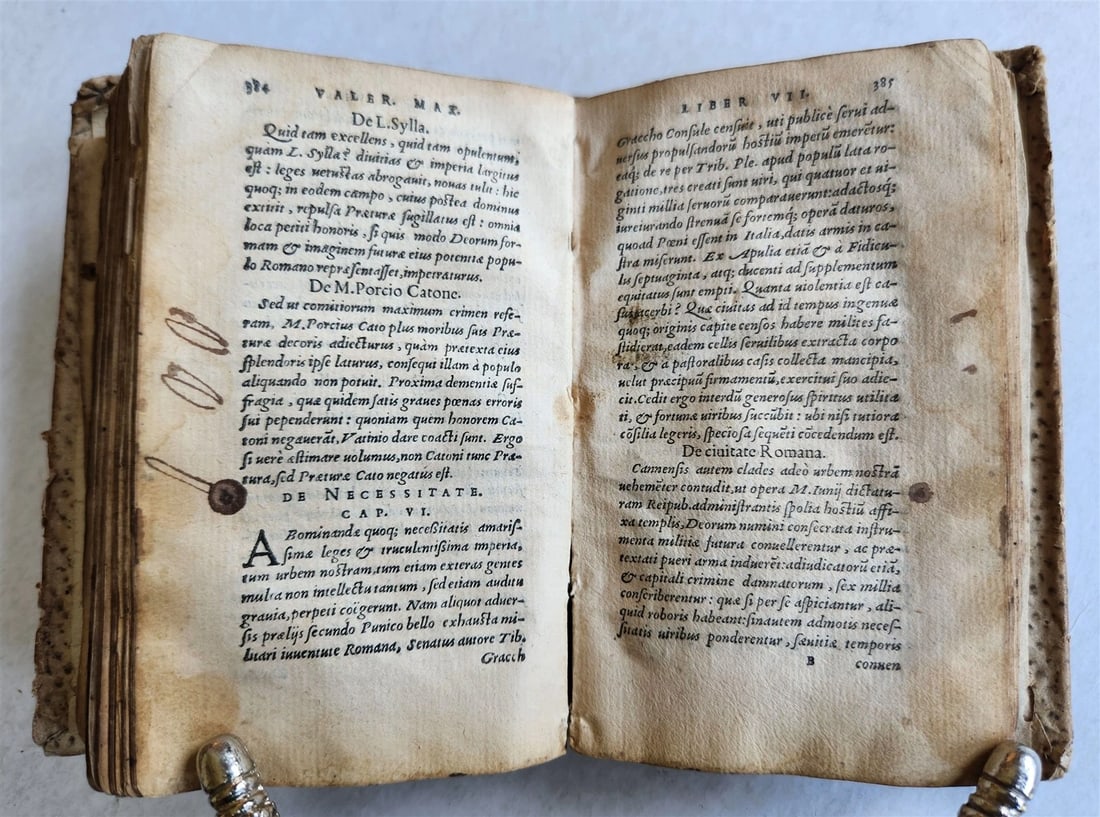 384 VALER. MAX.
De L. Sylla.
Quid tam excellens, quid tam opulentum,
quàm L. Sylla? diuitias & imperia largitus
est: leges uetustas abrogauit, nouas tulit: hic
quoq; in eodem campo, cuius postea dominus
extitit, repulsa Præturæ sugillatus est: omnia
loca petiti honoris, si quis modo Deorum for-
mam & imaginem futuræ eius potentiæ popu-
lo Romano repræsentasset, impetraturus.
De M. Porcio Catone.
Sed ut comitiorum maximum crimen refe-
ram, M. Porcius Cato plus moribus suis Præ-
turæ decoris adiecturus, quàm prætexta eius
splendoris ipse laturus, consequi illam à populo
aliquando non potuit. Proxima dementiæ suf-
fragia, quæ quidem satis graues pœnas erroris
sui pependerunt: quoniam quem honorem Ca-
toni negauerāt, Vatinio dare coacti sunt. Ergo
si uerè æstimare volumus, non Catoni tunc Præ-
tura, sed Præturæ Cato negatus est.
DE NECESSITATE.
CAP. VI.
ABominandæ quoq; necessitatis amaris-
simæ leges & truculentissima imperia,
tum urbem nostram, tum etiam exteras gentes
multa non intellectu tantum, sed etiam auditu
grauia, perpeti coëgerunt. Nam aliquot aduer-
sis prælijs secundo Punico bello exhausta mi-
litari iuuentute Romana, Senatus autore Tib.
Gracch
LIBER VII. 385
Graccho Consule censuit, uti publicè serui ad-
uersus propulsandorū hostiū impetū emerētur:
eaq; de re per Trib. Ple. apud populū lata ro-
gatione, tres creati sunt uiri, qui quatuor et ui-
ginti millia seruorū comparauerunt: adactosq;
iureiurando strenuā se fortemq; operā daturos,
quoad Pœni essent in Italia, datis armis in ca-
stra miserunt. Ex Apulia etiā & à Fidicu-
lis septuaginta, atq; ducenti ad supplementum
equitatus sunt empti. Quanta uiolentia est ca-
sus acerbi? Quæ ciuitas ad id tempus ingenuæ
quoq; originis capite censos habere milites fa-
stidierat, eadem cellis seruilibus extracta corpo
ra, & à pastoralibus casis collecta mancipia,
uelut præcipuū firmamentū, exercitui suo adie-
cit. Cedit ergo interdū generosus spiritus utilita
ti, & fortunæ uiribus succūbit: ubi nisi tutiora
cōsilia legeris, speciosa sequēti cōcedendum est.
De ciuitate Romana.
Cannensis autem clades adeò urbem nostrā
uehemēter contudit, ut opera M. Iunij dictatu-
ram Reipub. administrantis spolia hostiū affi-
xa templis, Deorum numini consecrata instru-
menta militiæ futura conuellerentur, ac præ-
textati pueri arma induerēt: adiudicatorū etiā,
& capitali crimine damnatorum, sex millia
conscriberentur: quæ si per se aspiciantur, ali-
quid roboris habeant: sin autem admotis neces-
sitatis uiribus ponderentur, sæuitiæ temporis
B conuen